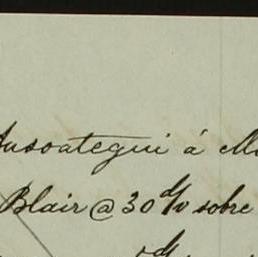 Ausoategui á
Blair @ 30 d/v sobre